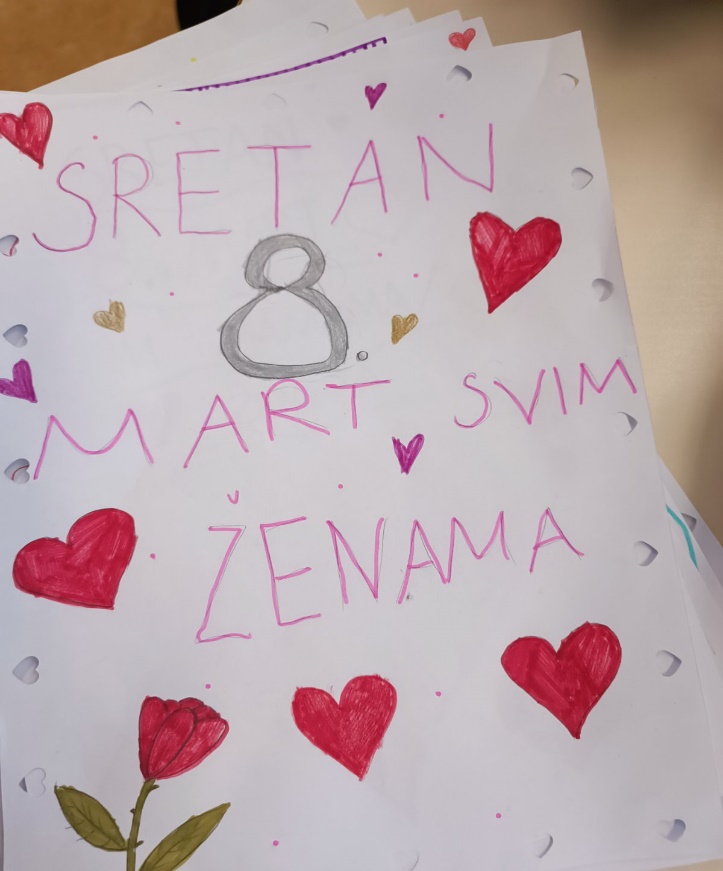 SRETAN
8.
MART SVIM
ŽENAMA